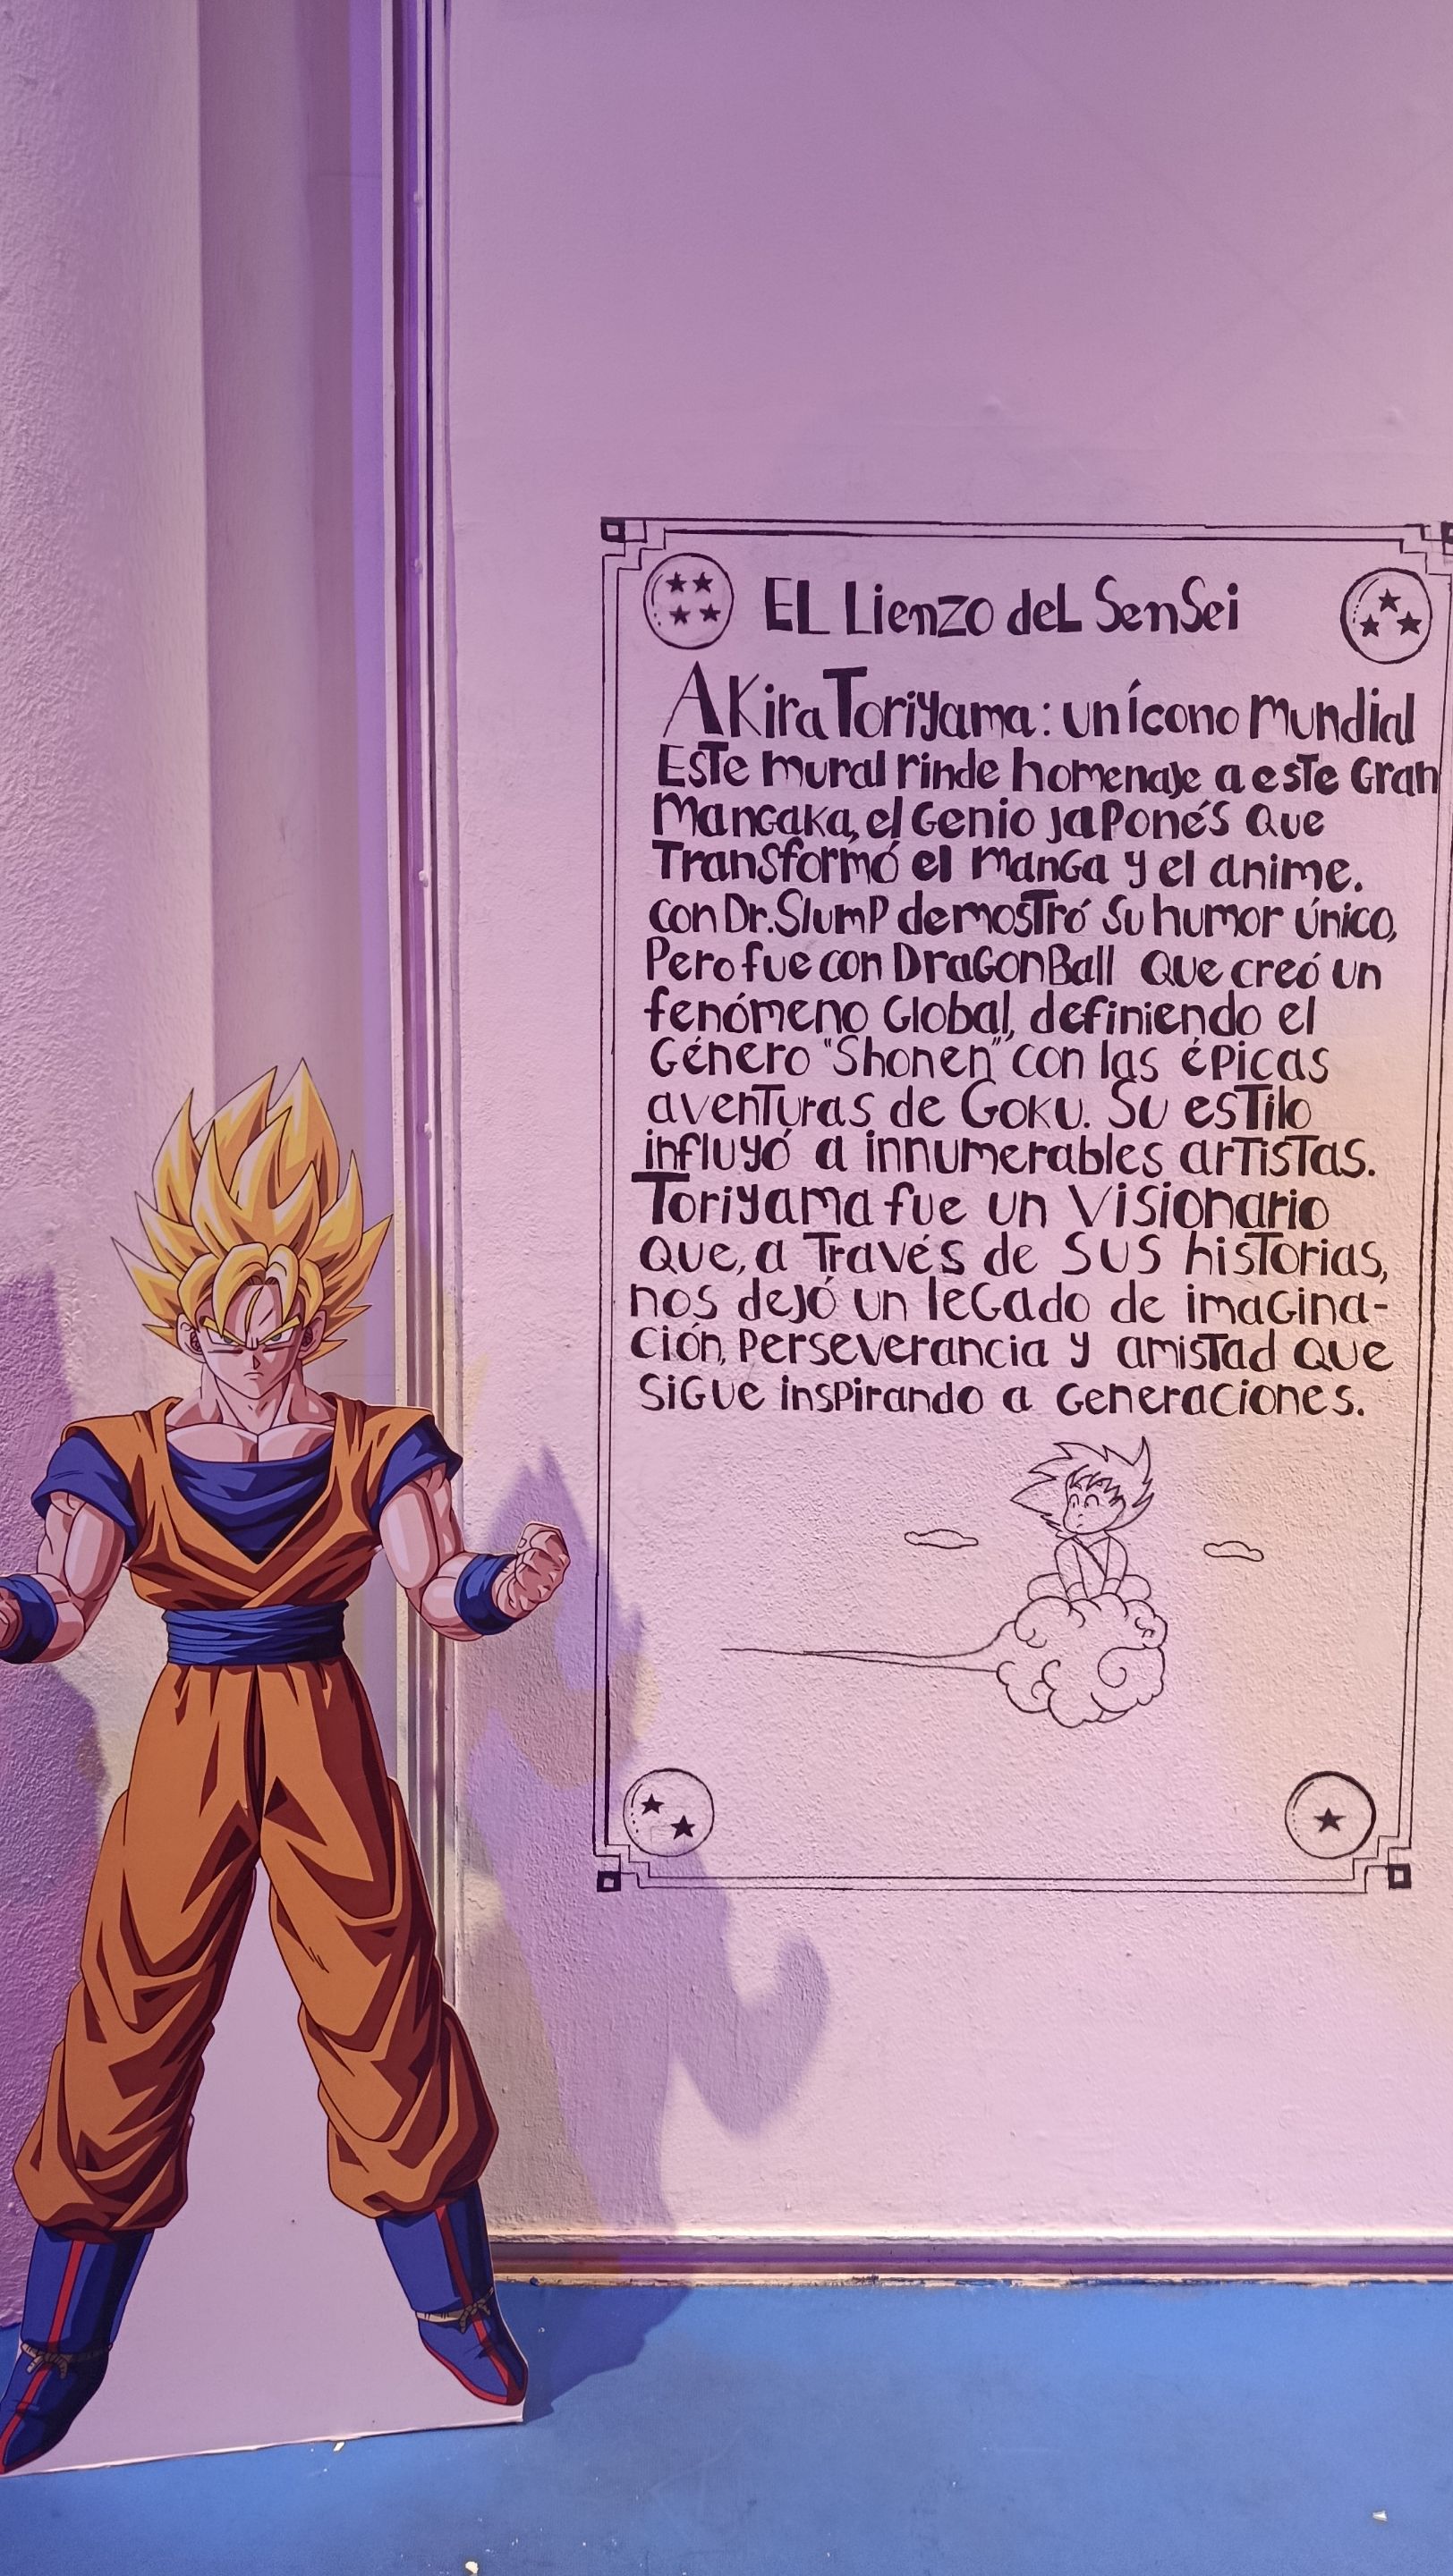 EL Lienzo del Sensei
Akira Toriyama: un ícono mundial
Este mural rinde homenaje a este Gran
Mangaka, el Genio japonés que
Transformó el manga y el anime.
con Dr. Slump demostró su humor único,
Pero fue con Dragon Ball que creó un
fenómeno Global, definiendo el
Género "Shonen" con las épicas
aventuras de Goku. Su estilo
influyó a innumerables artistas.
Toriyama fue un visionario
que, a través de sus historias,
nos dejó un legado de imagina-
ción, perseverancia y amistad que
sigue inspirando a generaciones.